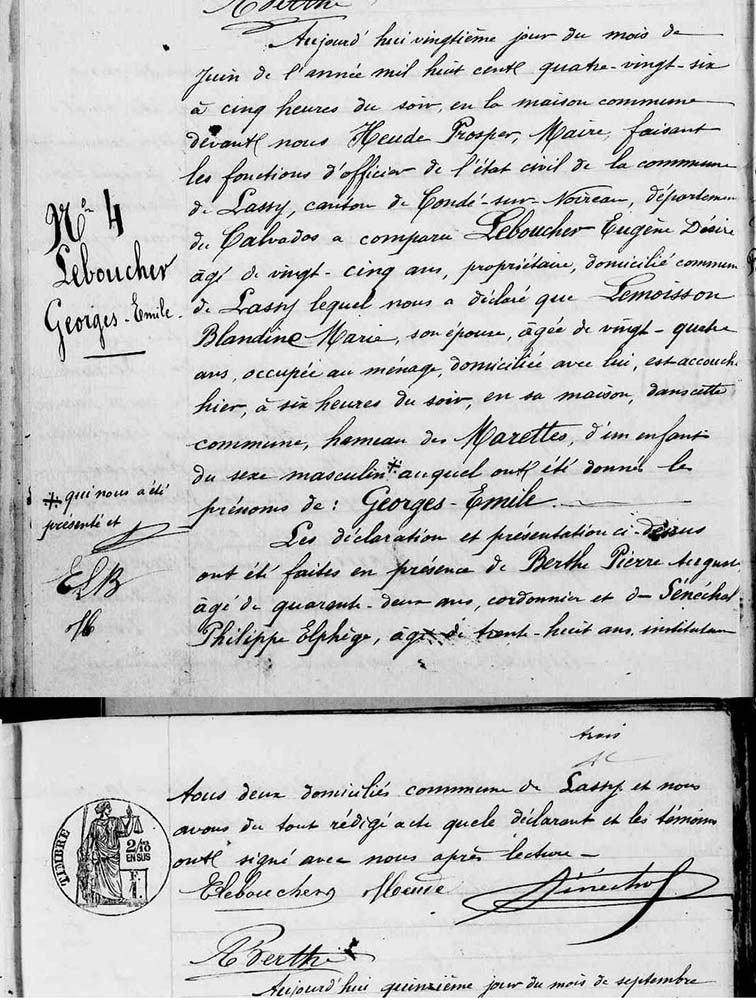 A Berthe
Aujourd'hui vingtième jour du mois de
Juin de l'année mil huit cent quatre-vingt-six
à cinq heures du soir, en la maison commune
devant nous Heude Prosper, Maire, faisant
les fonctions d'officier de l'état civil de la commune
de Lassy, canton de Condé-sur-Noireau, départemen
du Calvados a comparu Leboucher Eugène Désiré
âgé de vingt-cinq ans, propriétaire, domicilié commun
de Lassy lequel nous a déclaré que Lemoisson
Blandine Marie, son épouse, âgée de vingt-quatre
ans, occupée au ménage, domiciliée avec lui, est accouch
hier, à six heures du soir, en sa maison, dans cette
commune, hameau des Marettes, d'un enfant
du sexe masculin ‡ auquel ont été donné les
prénoms de : Georges-Emile.
Les déclaration et présentation ci-dessus
ont été faites en présence de Berthe Pierre August
âgé de quarante-deux ans, cordonnier et de Sénéchal
Philippe Elphège, âgé de trente-huit ans, instituteur
N° 4
Leboucher
Georges-Emile.
‡ qui nous a été
présenté et
ELB
H
trois
tous deux domiciliés commune de Lassy et nous
avons du tout rédigé acte que le déclarant et les témoins
ont signé avec nous après lecture —
TIMBRE
2/10
EN SUS
F.
1.
E Leboucher Heude Sénéchal
A Berthe
Aujourd'hui quinzième jour du mois de septembre